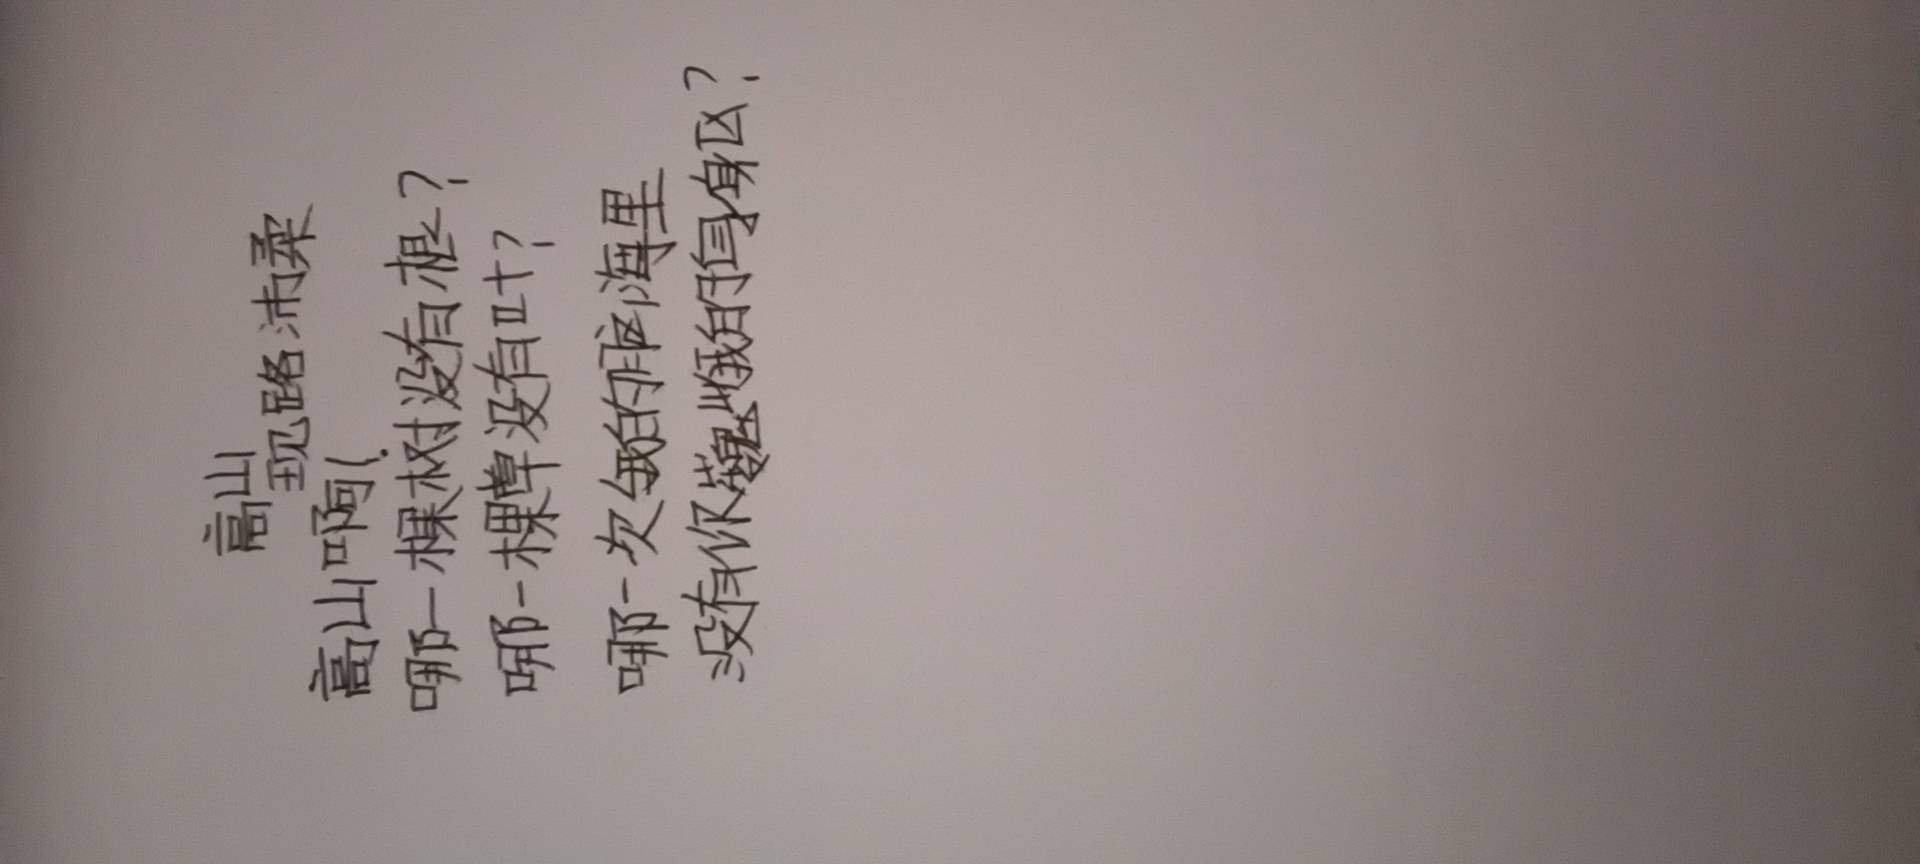 高山
现路沛柔
高山啊！
哪一棵树没有根？
哪一棵草没有叶？
哪一次我的脑海里
没有你巍峨的身躯？